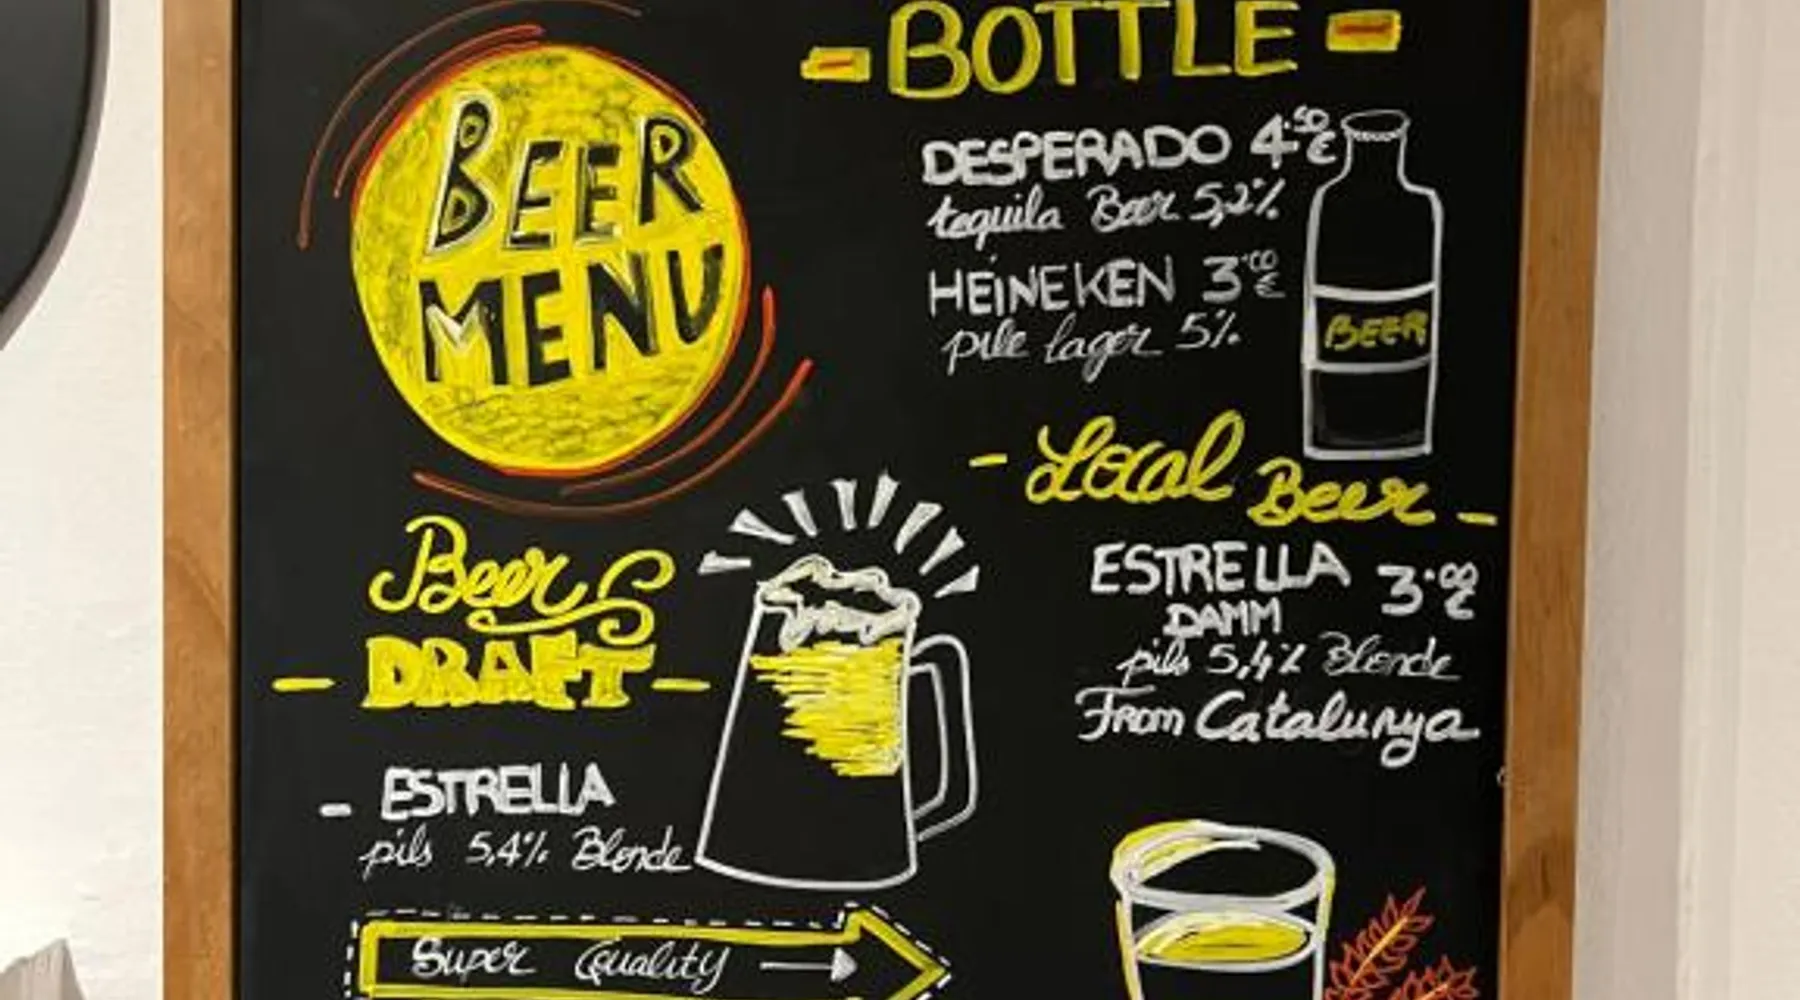 BEER
MENU
- BOTTLE -
DESPERADO 4.50€
tequila Beer 5,2%
HEINEKEN 3.00€
pile lager 5%
BEER
- Local Beer -
ESTRELLA 3.00€
DAMM
pils 5,4% Blonde
From Catalunya
Beers
- DRAFT -
- ESTRELLA
pils 5,4% Blonde
Super Quality →